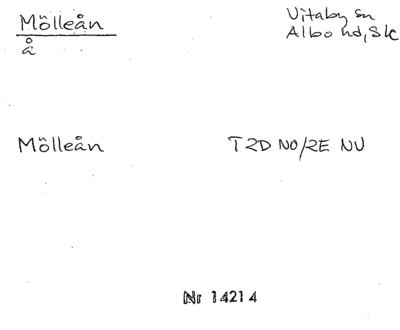 Mölleån
å
Vitaby sn
Albo hd, Sk
Mölleån
T2D NO/2E NV
Nr 14214